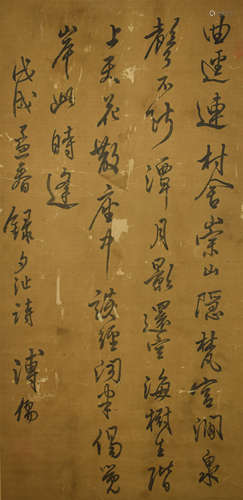 曲逕連村舍崇山隱梵宮澗泉
聲不斷潭月影還空海樹生階
上天花散座中談經聞半偈覺
岸此時逢
戊戌孟春錄夕沚詩 溥儒